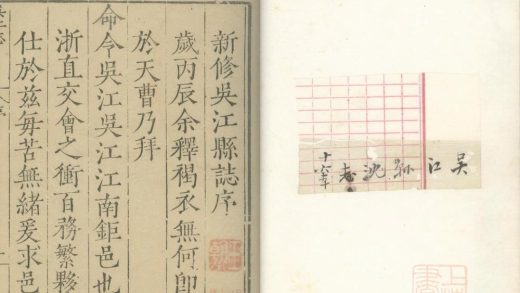 吴江縣沈志
新修吳江縣誌序
歲丙辰余釋褐衣無何即
於天曹乃拜
命令吳江吳江江南鉅邑也
浙直交會之衝百務繁夥
仕於茲每苦無緒爰求邑